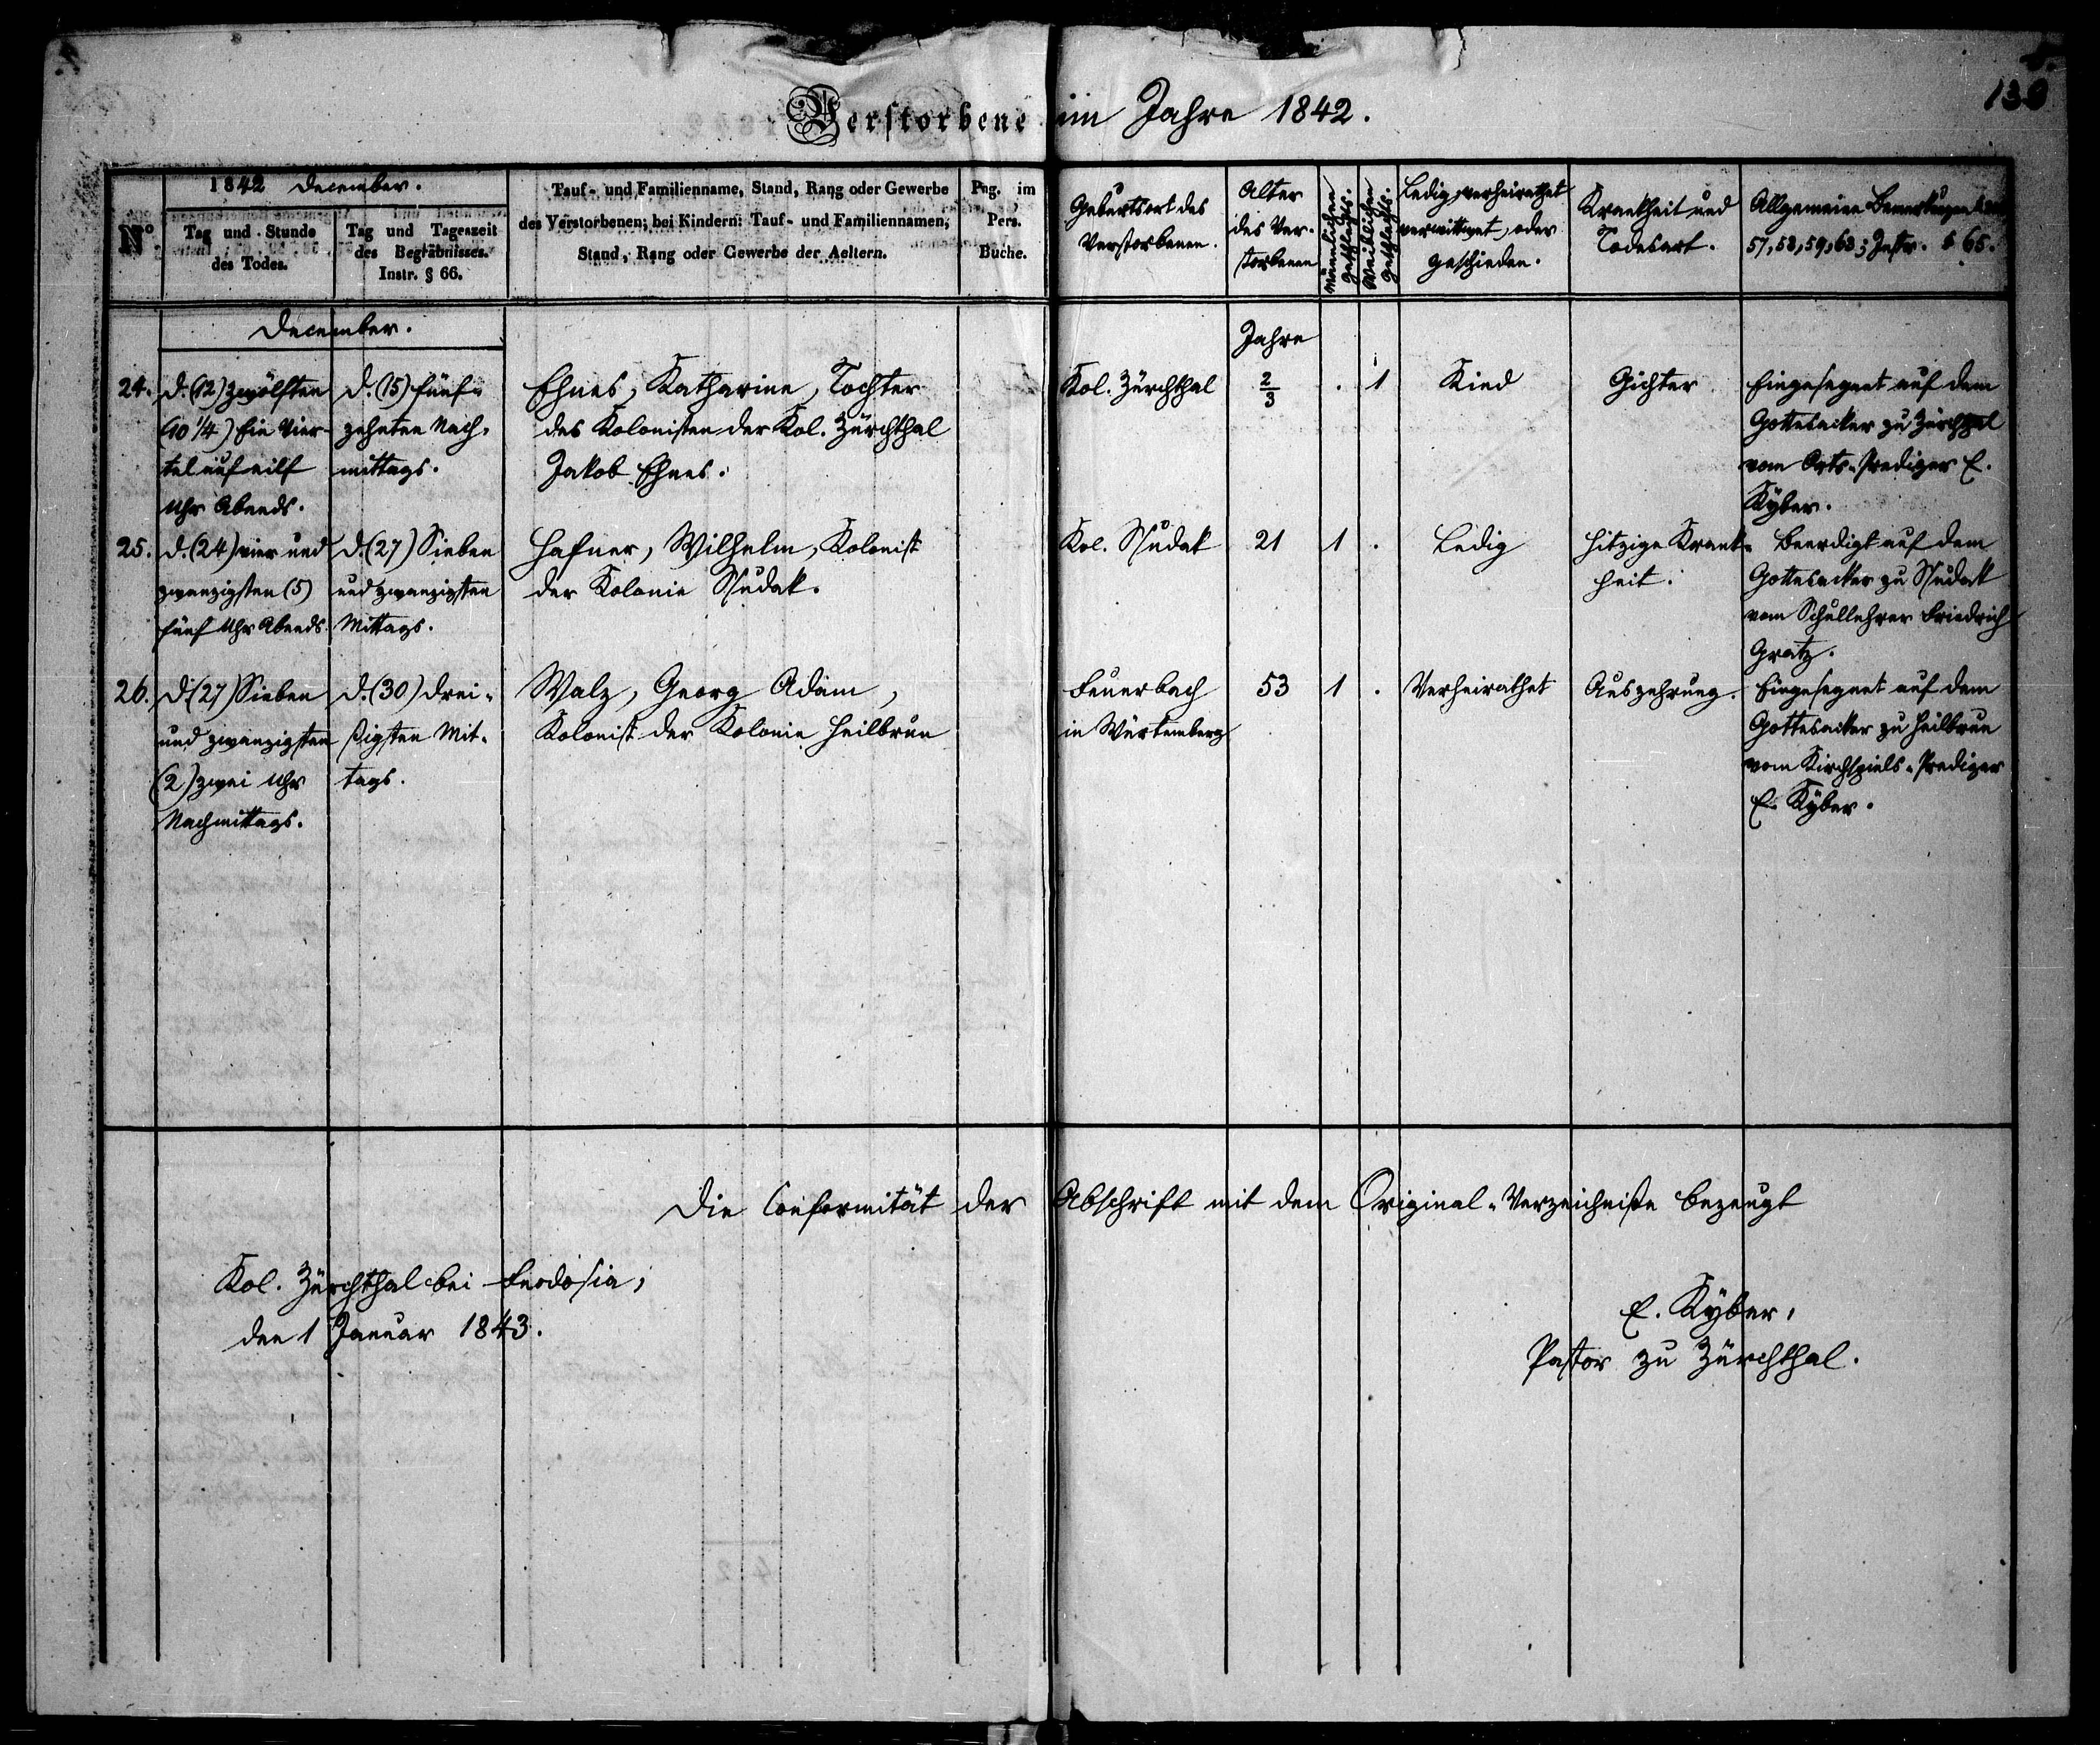 139
Verstorbene im Jahre 1842.
No.
1842 December.
Tag und Stunde
des Todes.
Tag und Tageszeit
des Begräbnisses.
Instr. § 66.
Tauf- und Familienname, Stand, Rang oder Gewerbe
des Verstorbenen; bei Kindern: Tauf- und Familiennamen,
Stand, Rang oder Gewerbe der Aeltern.
Pag. im
Pers.
Buche.
Geburtsort des
Verstorbenen.
Alter
des Ver-
storbenen
Männlichen
Geschlechts.
Weiblichen
Geschlechts.
Ledig, verheirathet
verwittwet, oder
geschieden.
Krankheit und
Todesart.
Allgemeine Bemerkungen
57, 58, 59, 63; Instr. § 65.
December.
Jahre
24.
d. (12) zwölften
(10 1/4) Ein Vier-
tel auf eilf
Uhr Abends.
d. (15) fünf-
zehnten Nach-
mittags.
Ehnes, Katharine, Tochter
des Kolonisten der Kol. Zürchthal
Jakob Ehnes.
Kol. Zürchthal
2/3
.
1
Kind
Gichter
Eingesegnet auf dem
Gottesacker zu Zürchthal
vom Orts-Prediger E.
Kyber.
25.
d. (24) vier und
zwanzigsten (5)
fünf Uhr Abends.
d. (27) Sieben
und zwanzigsten
Mittags.
Hafner, Wilhelm, Kolonist
der Kolonie Sudak.
Kol. Sudak
21
1
.
Ledig
Hitzige Krank-
heit.
Beerdigt auf dem
Gottesacker zu Sudak
vom Schullehrer Friedrich
Gratz.
26.
d. (27) Sieben
und zwanzigsten
(2) zwei Uhr
Nachmittags.
d. (30) drei-
ßigsten Mit-
tags.
Walz, Georg Adam,
Kolonist der Kolonie Heilbrun
Feuerbach
in Würtemberg
53
1
.
Verheirathet
Auszehrung.
Eingesegnet auf dem
Gottesacker zu Heilbrun
vom Kirchspiels-Prediger
E. Kyber.
Die Conformität der Abschrift mit dem Original-Verzeichniße bezeugt
Kol. Zürchthal bei Feodosia,
den 1 Januar 1843.
E. Kyber,
Pastor zu Zürchthal.